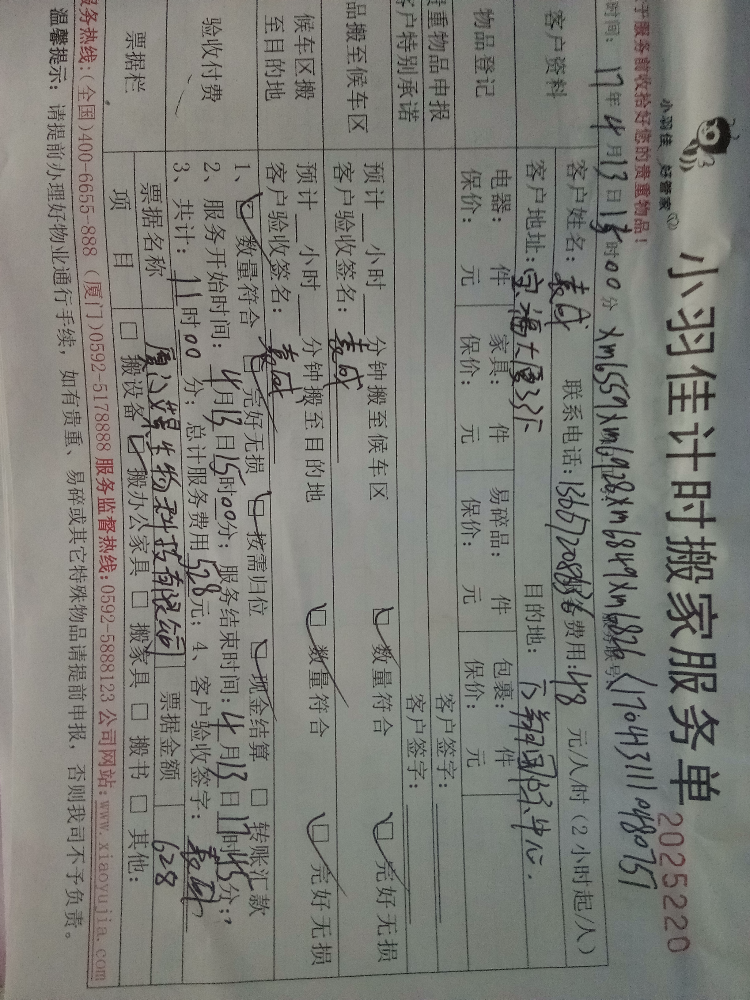 小羽佳 好管家
小羽佳计时搬家服务单
2025220
于服务前收拾好您的贵重物品!
时间: 17年4月13日13时00分 xm6559xm6928xm6849xm6816
客户资料
客户姓名: 袁成 联系电话: 服务费用:48 元/人/时(2小时起/人)
客户地址: 宝福大厦 目的地: 国际中心.
物品登记
电器: 件 家具: 件 易碎品: 件 包裹: 件
保价: 元 保价: 元 保价: 元 保价: 元
贵重物品申报 客户签字:
客户特别承诺 客户签字:
品搬至候车区
预计 小时 分钟搬至候车区 数量符合 完好无损
客户验收签名: 袁成
候车区搬至目的地
预计 小时 分钟搬至目的地 数量符合 完好无损
客户验收签名: 袁成
验收付费
1、 数量符合 完好无损 按需归位 现金结算 转账汇款
2、服务开始时间: 4月13日15时00分; 服务结束时间: 4月13日 时45分;
3、共计: 11时00分; 总计服务费用 528元; 4、客户验收签字: 袁成
票据栏
票据名称 生物科技有限公司 票据金额 628
项目 搬设备 搬办公家具 搬家具 搬书 其他:
服务热线:(全国)400-6655-888 (厦门)0592-5178888 服务监督热线:0592-5888123 公司网站:www.xiaoyujia.com
温馨提示: 请提前办理好物业通行手续, 如有贵重、易碎或其它特殊物品请提前申报, 否则我司不予负责。